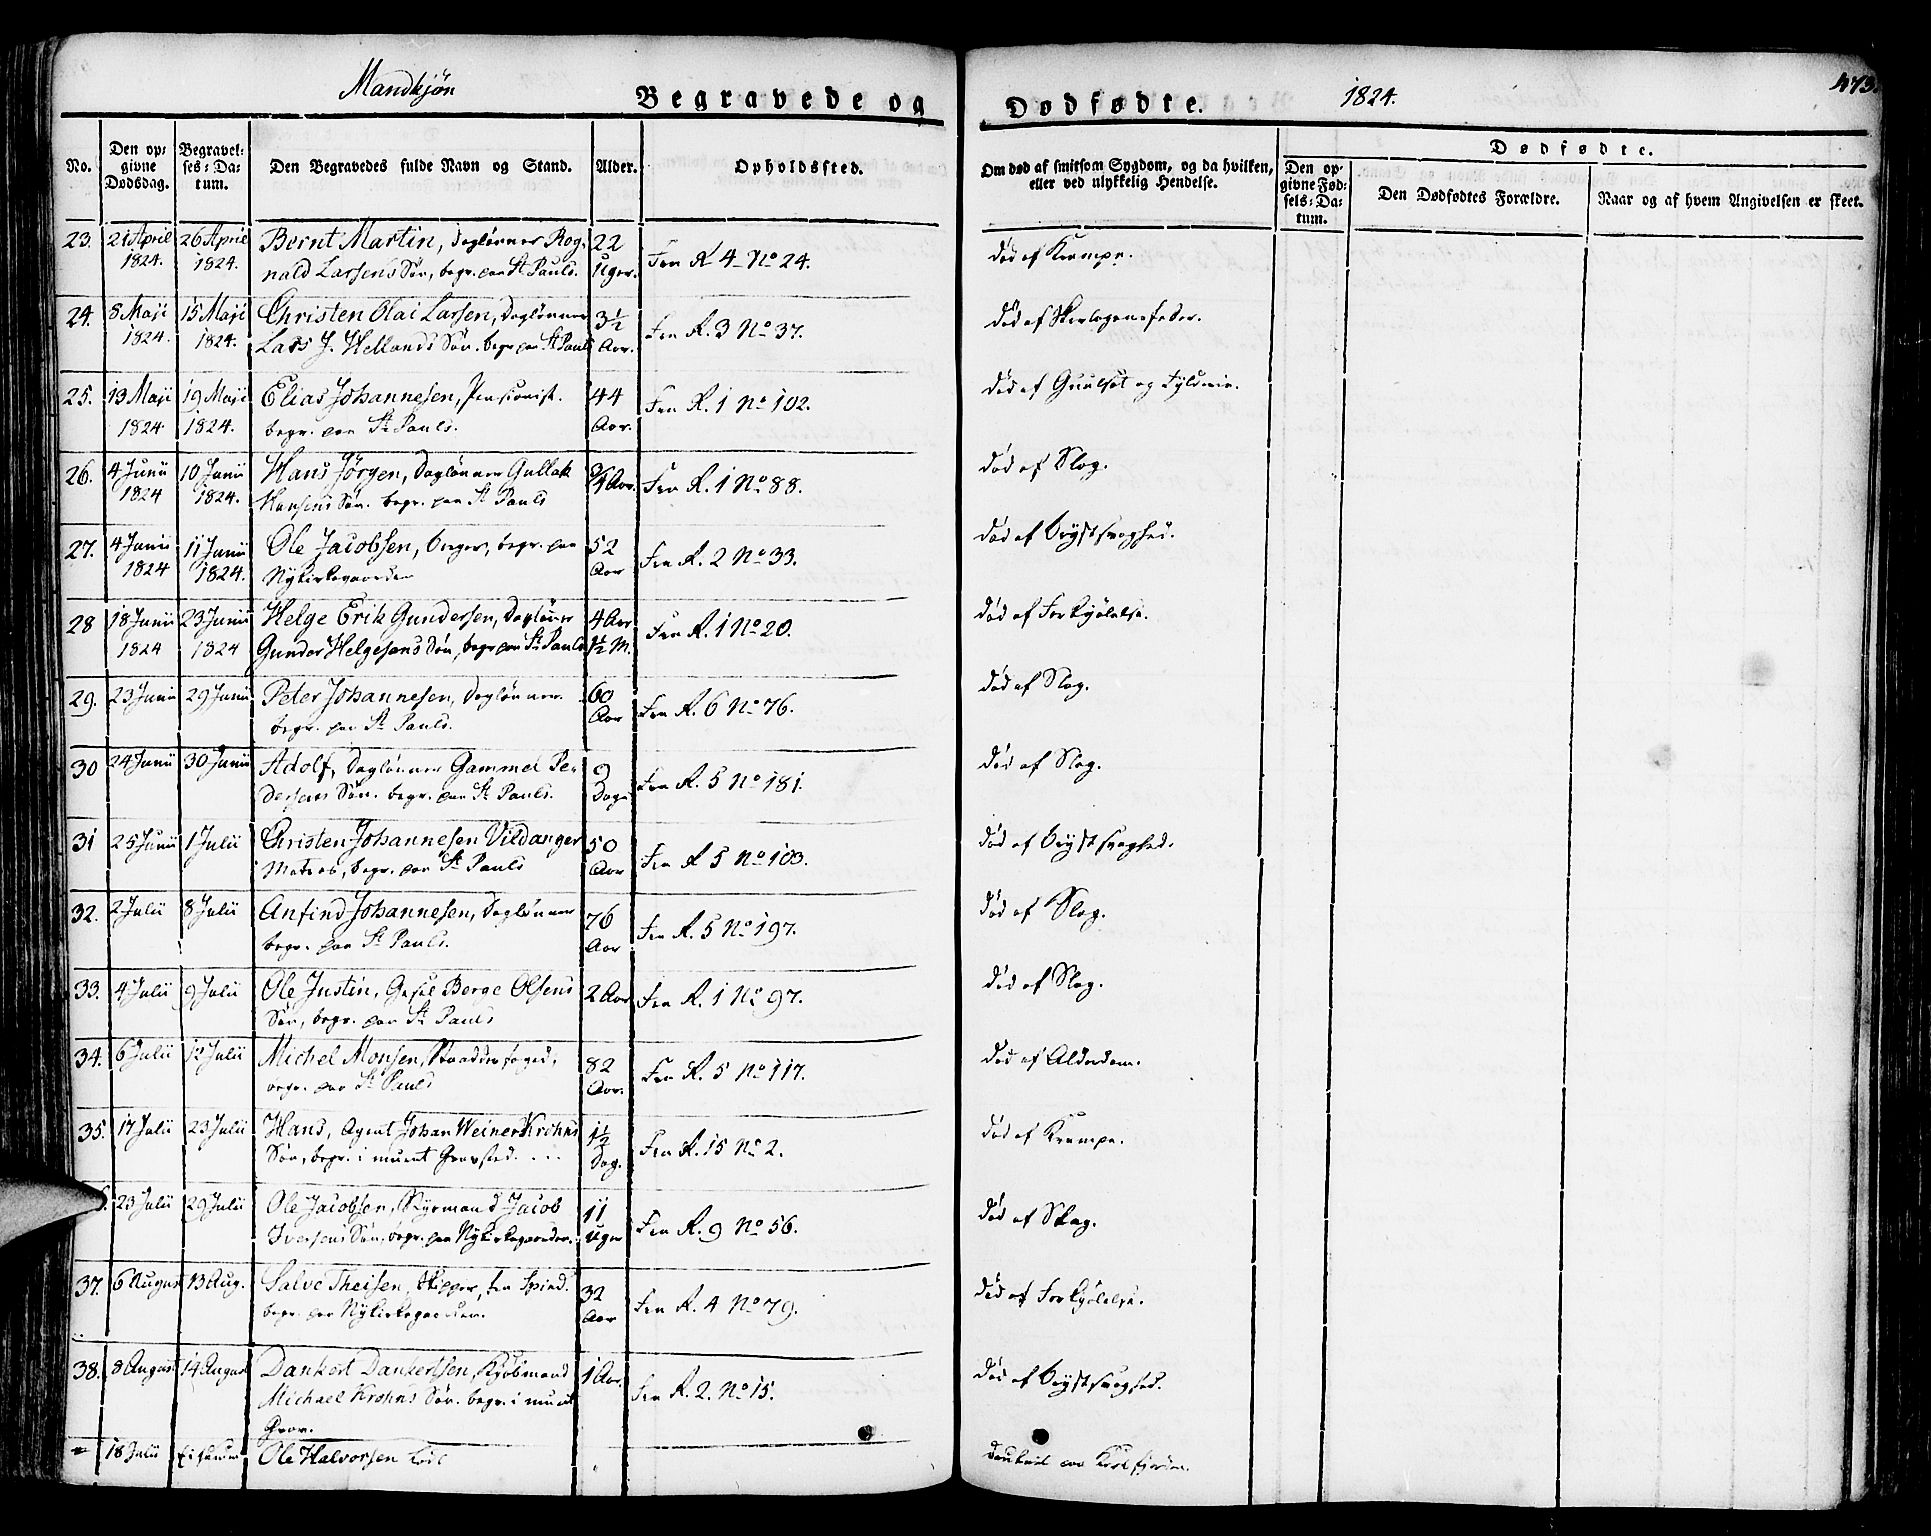 Mandkjøn
Begravede og
Dødfødte.
1824.
473.
No.
Den op-
givne
Dødsdag.
Begravel-
ses-Da-
tum.
Den Begravedes fulde Navn og Stand.
Alder.
Opholdssted.
Om død af smitsom Sygdom, og da hvilken,
eller ved ulykkelig Hendelse.
Dødfødte.
Den op-
givne Fød-
sels-Da-
tum.
Den Dødfødtes Forældre.
Naar og af hvem Angivelsen er skeet.
23. 21 April 26 April Bernt Martin, Daglønner Rog- 22
1824. 1824. nald Larsens Søn, begr. paa St Pauls. Uger. Fra R 4 No 24. død af Krampe.
24. 8 Maji 15 Maji Christen Olai Larsen, Daglønner 3½
1824. 1824. Lars J. Hellands Søn. begr. paa St Pauls Aar. Fra R. 3 No 37. død af Skarlagensfeber.
25. 13 Maji 19 Maji Elias Johannesen, Pensionist. 44 Fra R. 1 No 102. død af Guulsot og
1824 1824. begr. paa St Pauls. Aar.
26. 4 Junii 10 Junii Hans Jörgen, Daglønner Gullak ¾ Aar. Fra R. 1 No 88. død af Slag.
1824 1824. Hansens Søn. begr. paa St Pauls
27. 4 Junii 11 Junii Ole Jacobsen, Borger, begr. paa 52 Fra R. 2 No 33. død af Brystsvaghed.
1824 1824. Nykirkegaarden Aar
28 18 Junii 23 Junii Helge Erik Gundersen, Dagløner 4 Aar Fra R. 1 No 20. død af Forkjølelse.
1824 1824 Gunder Helgesens Søn, begr paa St Pauls 1½ M.
29. 23 Junii 29 Junii Peter Johannesen, Daglønner. 60 Fra R. 6 No 76. død af Slag.
begr. paa St Pauls. Aar
30 24 Junii 30 Junii Adolf, Daglønner Gammel Pe- 9 Fra R. 5 No 181. død af Slag.
dersens Søn. begr. paa St Pauls. Dage
31 25 Junii 1 Julii Christen Johannesen Vildanger 50 Fra R 5 No 103. død af Brystsvaghed.
Matros, begr. paa St Pauls Aar
32. 2 Julii 8 Julii Anfind Johannesen, Daglønner 76 Fra R. 5 No 197. død af Slag.
begr. paa St Pauls. Aar
33. 4 Julii 9 Julii Ole Justin, Gesel Berge Olsens 2 Aar Fra R. 1 No 97. død af Slag.
Søn, begr. paa St Pauls
34. 6 Julii 12 Julii Michel Monsen, 82 Fra R. 5 No 117. død af Alderdom.
begr. paa St Pauls Aar.
35. 17 Julii 23 Julii Hans, Agent Johan Weiner Krohns 1½ Fra R. 15 No 2. død af Krampe.
Søn, begr. i muret Gravsted. Dag.
23 Julii 29 Julii Ole Jacobsen, Styrmand Jacob 11 Fra R. 9 No 56. død af Slag.
Iversens Søn, begr. paa Nykirkegaarden. Uger
37. 6 August 13 Aug. Salve Theisen, Skipper, fra Spind. 32 Fra R. 4 No 79. død af Forkjølelse.
begr. paa Nykirkegaarden. Aar
38. 8 August 14 August Dankert Dankertsen, Kjøbmand 1 Aar. Fra R. 2. No 15. død af Brystsvaghed.
Michael Krohns Søn. begr. i muret
Grav.
18 Julii Ole Halvorsen